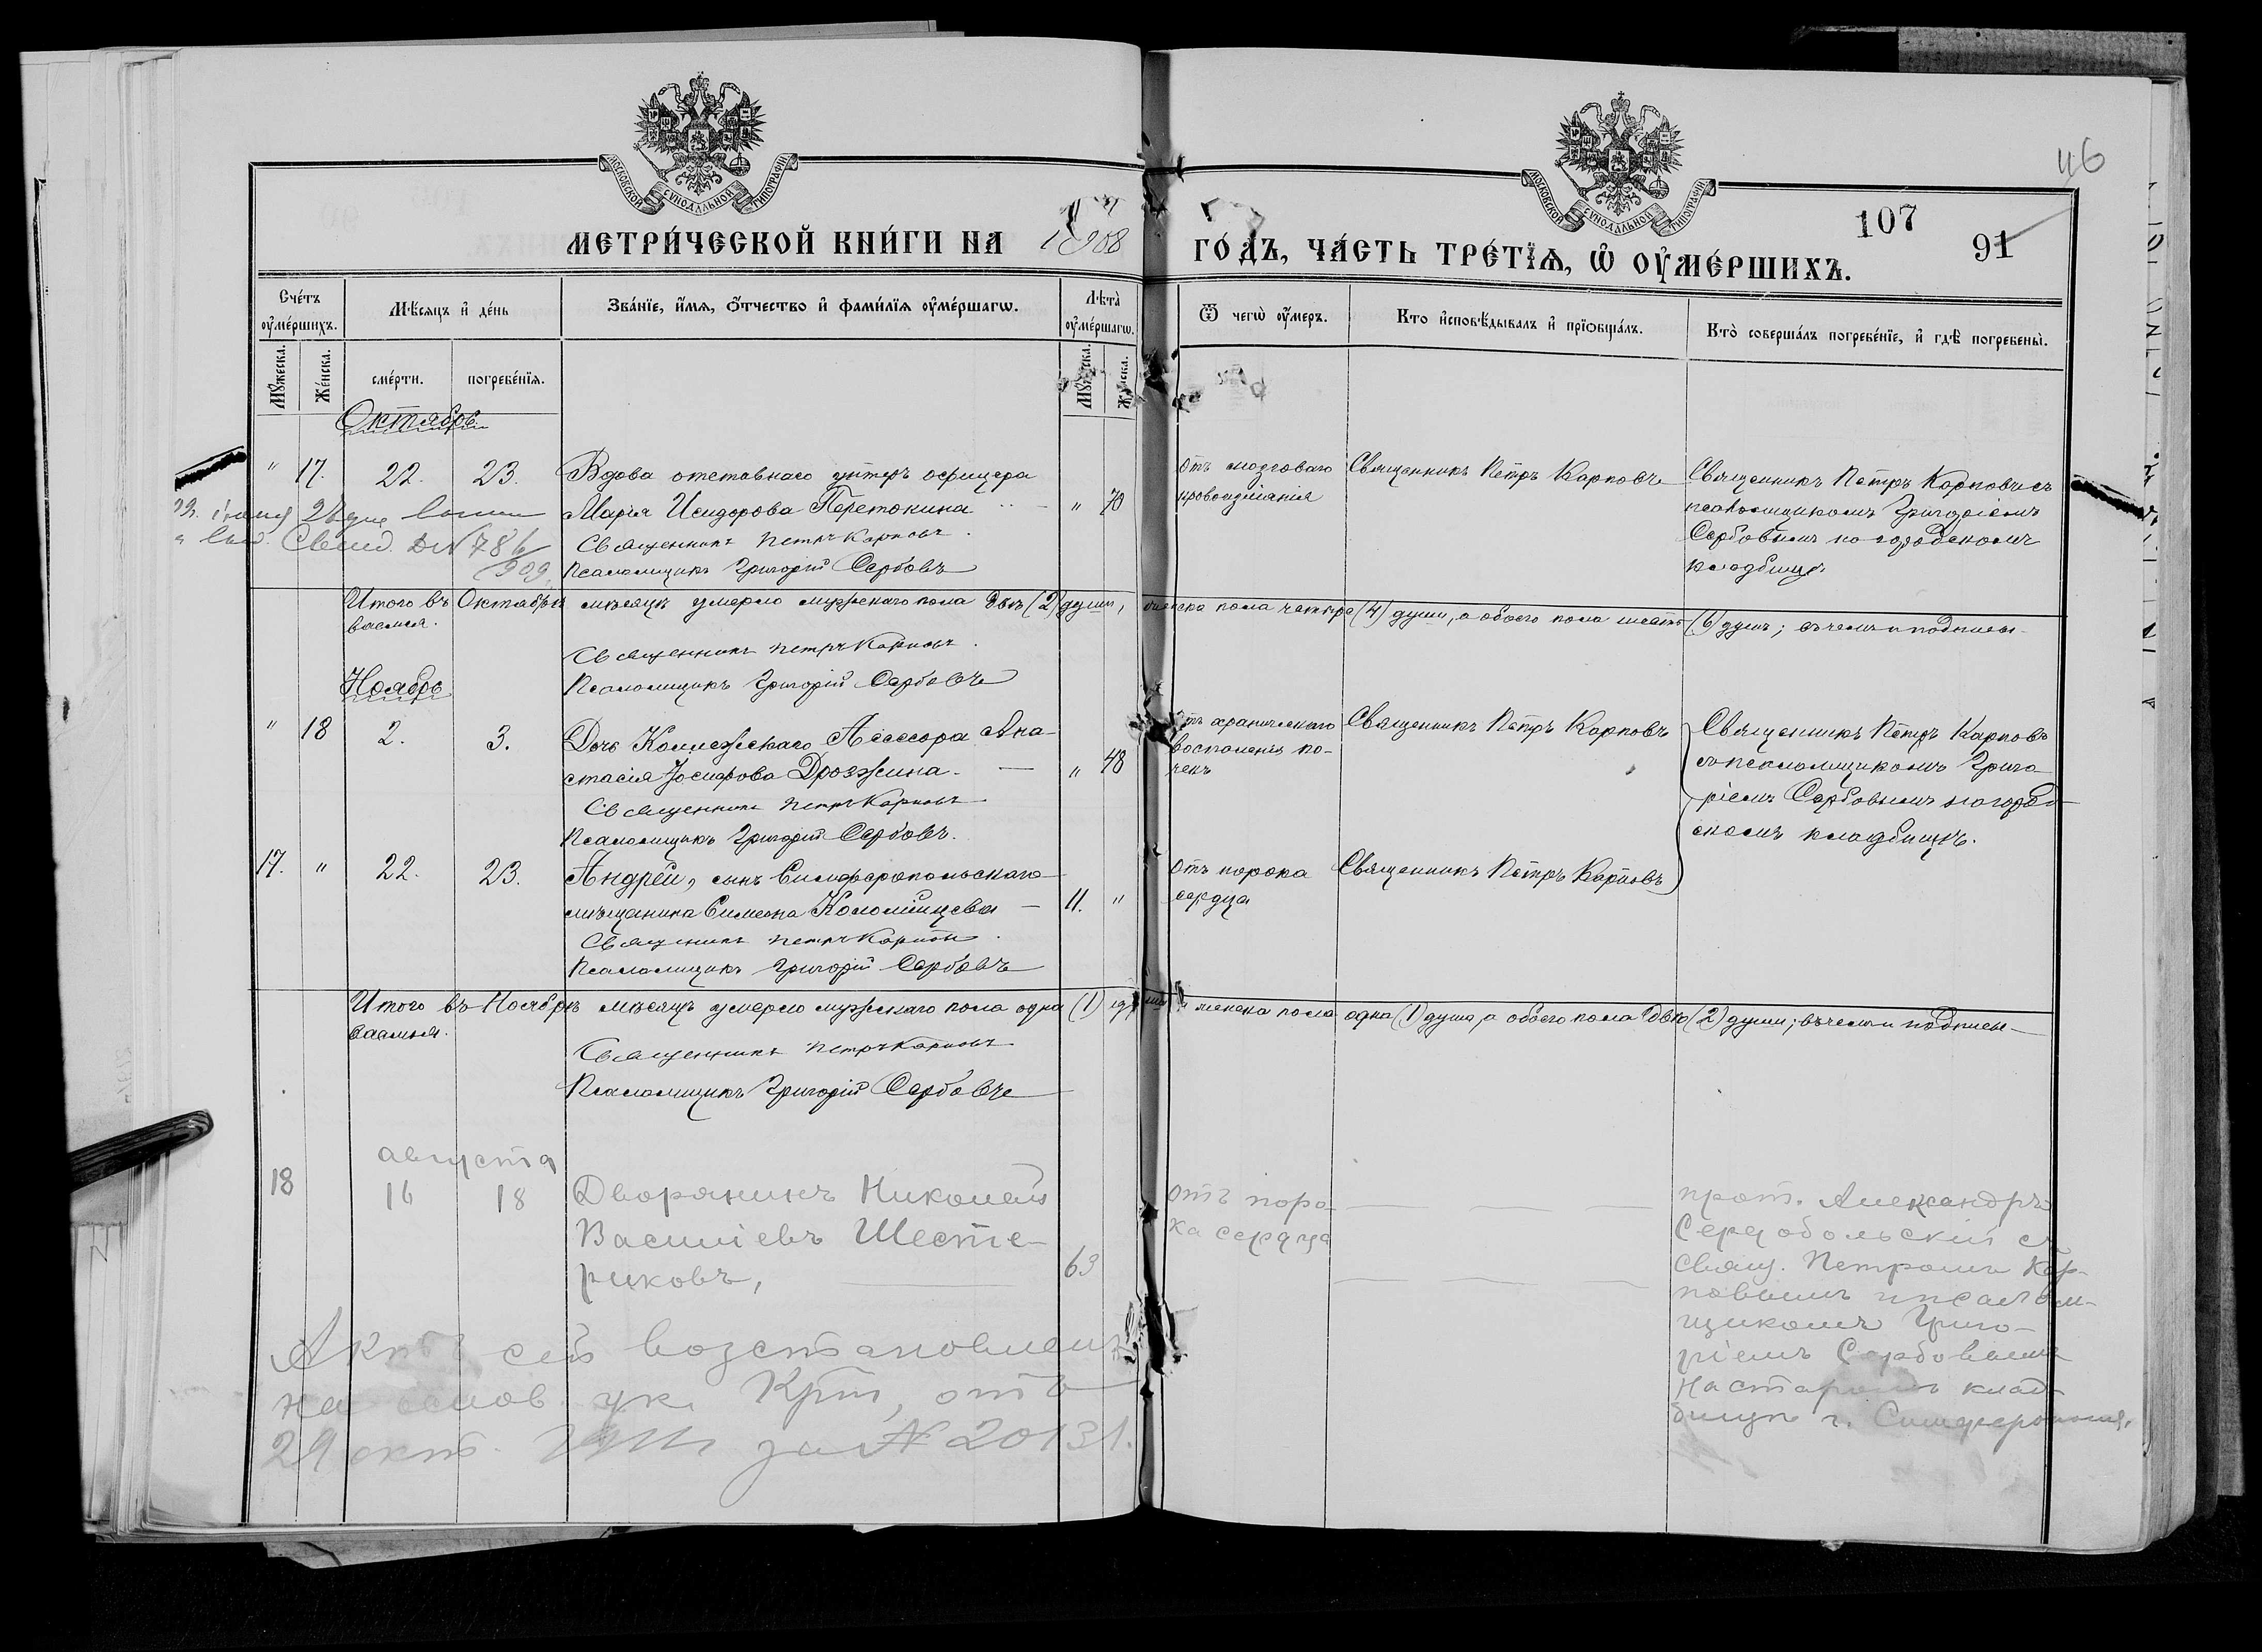 46
107
91
МОСКОВСКОЙ СѴНОДАЛЬНОЙ ТИПОГРАФІИ
МОСКОВСКОЙ СѴНОДАЛЬНОЙ ТИПОГРАФІИ
МЕТРИ́ЧЕСКОЙ КНИ́ГИ НА 1908 ГО́ДЪ, ЧА́СТЬ ТРЕ́ТІѦ, Ѡ҆ ОУ҆МЕ́РШИХЪ.
Сче́тъ оу҆ме́ршихъ.
Мѣ́сяцъ и҆ де́нь
Зва́нїе, и҆́мя, ѻ҆́тчество и҆ фами́лїя оу҆ме́ршагѡ.
Лѣта̀ оу҆ме́ршагѡ.
Ѿ чегѡ̀ оу҆́меръ.
Кто и҆сповѣ́дывалъ и҆ прїѡбща́лъ.
Кто̀ соверша́лъ погребе́нїе, и҆ гдѣ̀ погребены̀.
Мꙋ́жеска.
Же́нска.
сме́рти.
погребе́нїя.
Мꙋ́жеска.
Же́нска.
Октябрь
" 17. 22. 23. Вдова отставнаго унтеръ офицера
Марія Исидорова Перетокина " 70
Священникъ Петръ Карповъ.
Псаломщикъ Григорій Сербовъ
Отъ мозговаго
кровоизліянія
Священникъ Петръ Карповъ
Священникъ Петръ Карповъ съ
псаломщикомъ Григоріемъ
Сербовымъ на городскомъ
кладбищѣ
Свид. № 786
909
Итого въ Октябрѣ мѣсяцѣ умерло мужскаго пола двѣ (2) души, женска пола четыре (4) души, а обоего пола шесть (6) душъ; въ чемъ и подписы-
ваемся.
Священникъ Петръ Карповъ.
Псаломщикъ Григорій Сербовъ
Ноябрь
" 18 2. 3. Дочь Коллежскаго Ассесора Ана-
стасія Іосифова Дрозжина. " 48
Священникъ Петръ Карповъ
Псаломщикъ Григорій Сербовъ.
Отъ хроническаго
воспаленія по-
чекъ
Священникъ Петръ Карповъ
Священникъ Петръ Карповъ
съ псаломщикомъ Григо-
ріемъ Сербовымъ на город-
скомъ кладбищѣ.
17. " 22. 23. Андрей, сынъ Симферопольскаго
мѣщанина Симеона Коломійцева 11. "
Священникъ Петръ Карповъ.
Псаломщикъ Григорій Сербовъ
Отъ порока
сердца
Священникъ Петръ Карповъ
Итого въ Ноябрѣ мѣсяцѣ умерло мужскаго пола одна (1) душа, женска пола одна (1) душа, а обоего пола двѣ (2) души; въ чемъ и подписы-
ваемся.
Священникъ Петръ Карповъ
Псаломщикъ Григорій Сербовъ
августа
18 16 18 Дворянинъ Николай
Василіевъ Шесте-
риковъ, 63
Отъ поро-
ка сердца
прот. Александръ
Сердобольскій съ
свящ. Петромъ Кар-
повымъ и псалом-
щикомъ Григо-
ріемъ Сербовымъ
на старомъ клад-
бищѣ г. Симферополя.
Актъ сей возстановленъ
на основ. ук. отъ
29 окт. за № 20131.